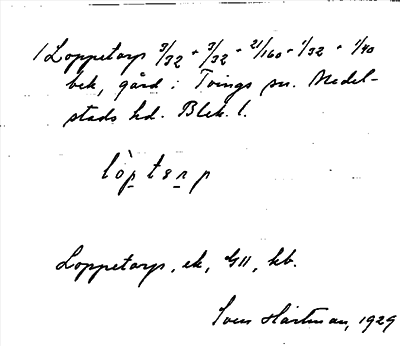 1 Loppetorp 3/32 + 3/32 + 21/160 + 1/32 + 1/40
bek, gård i Tvings sn. Medel-
stads hd. Blek. l.
lòpterp
Loppetorp, ek, GII, kb.
Sven Hartman, 1929